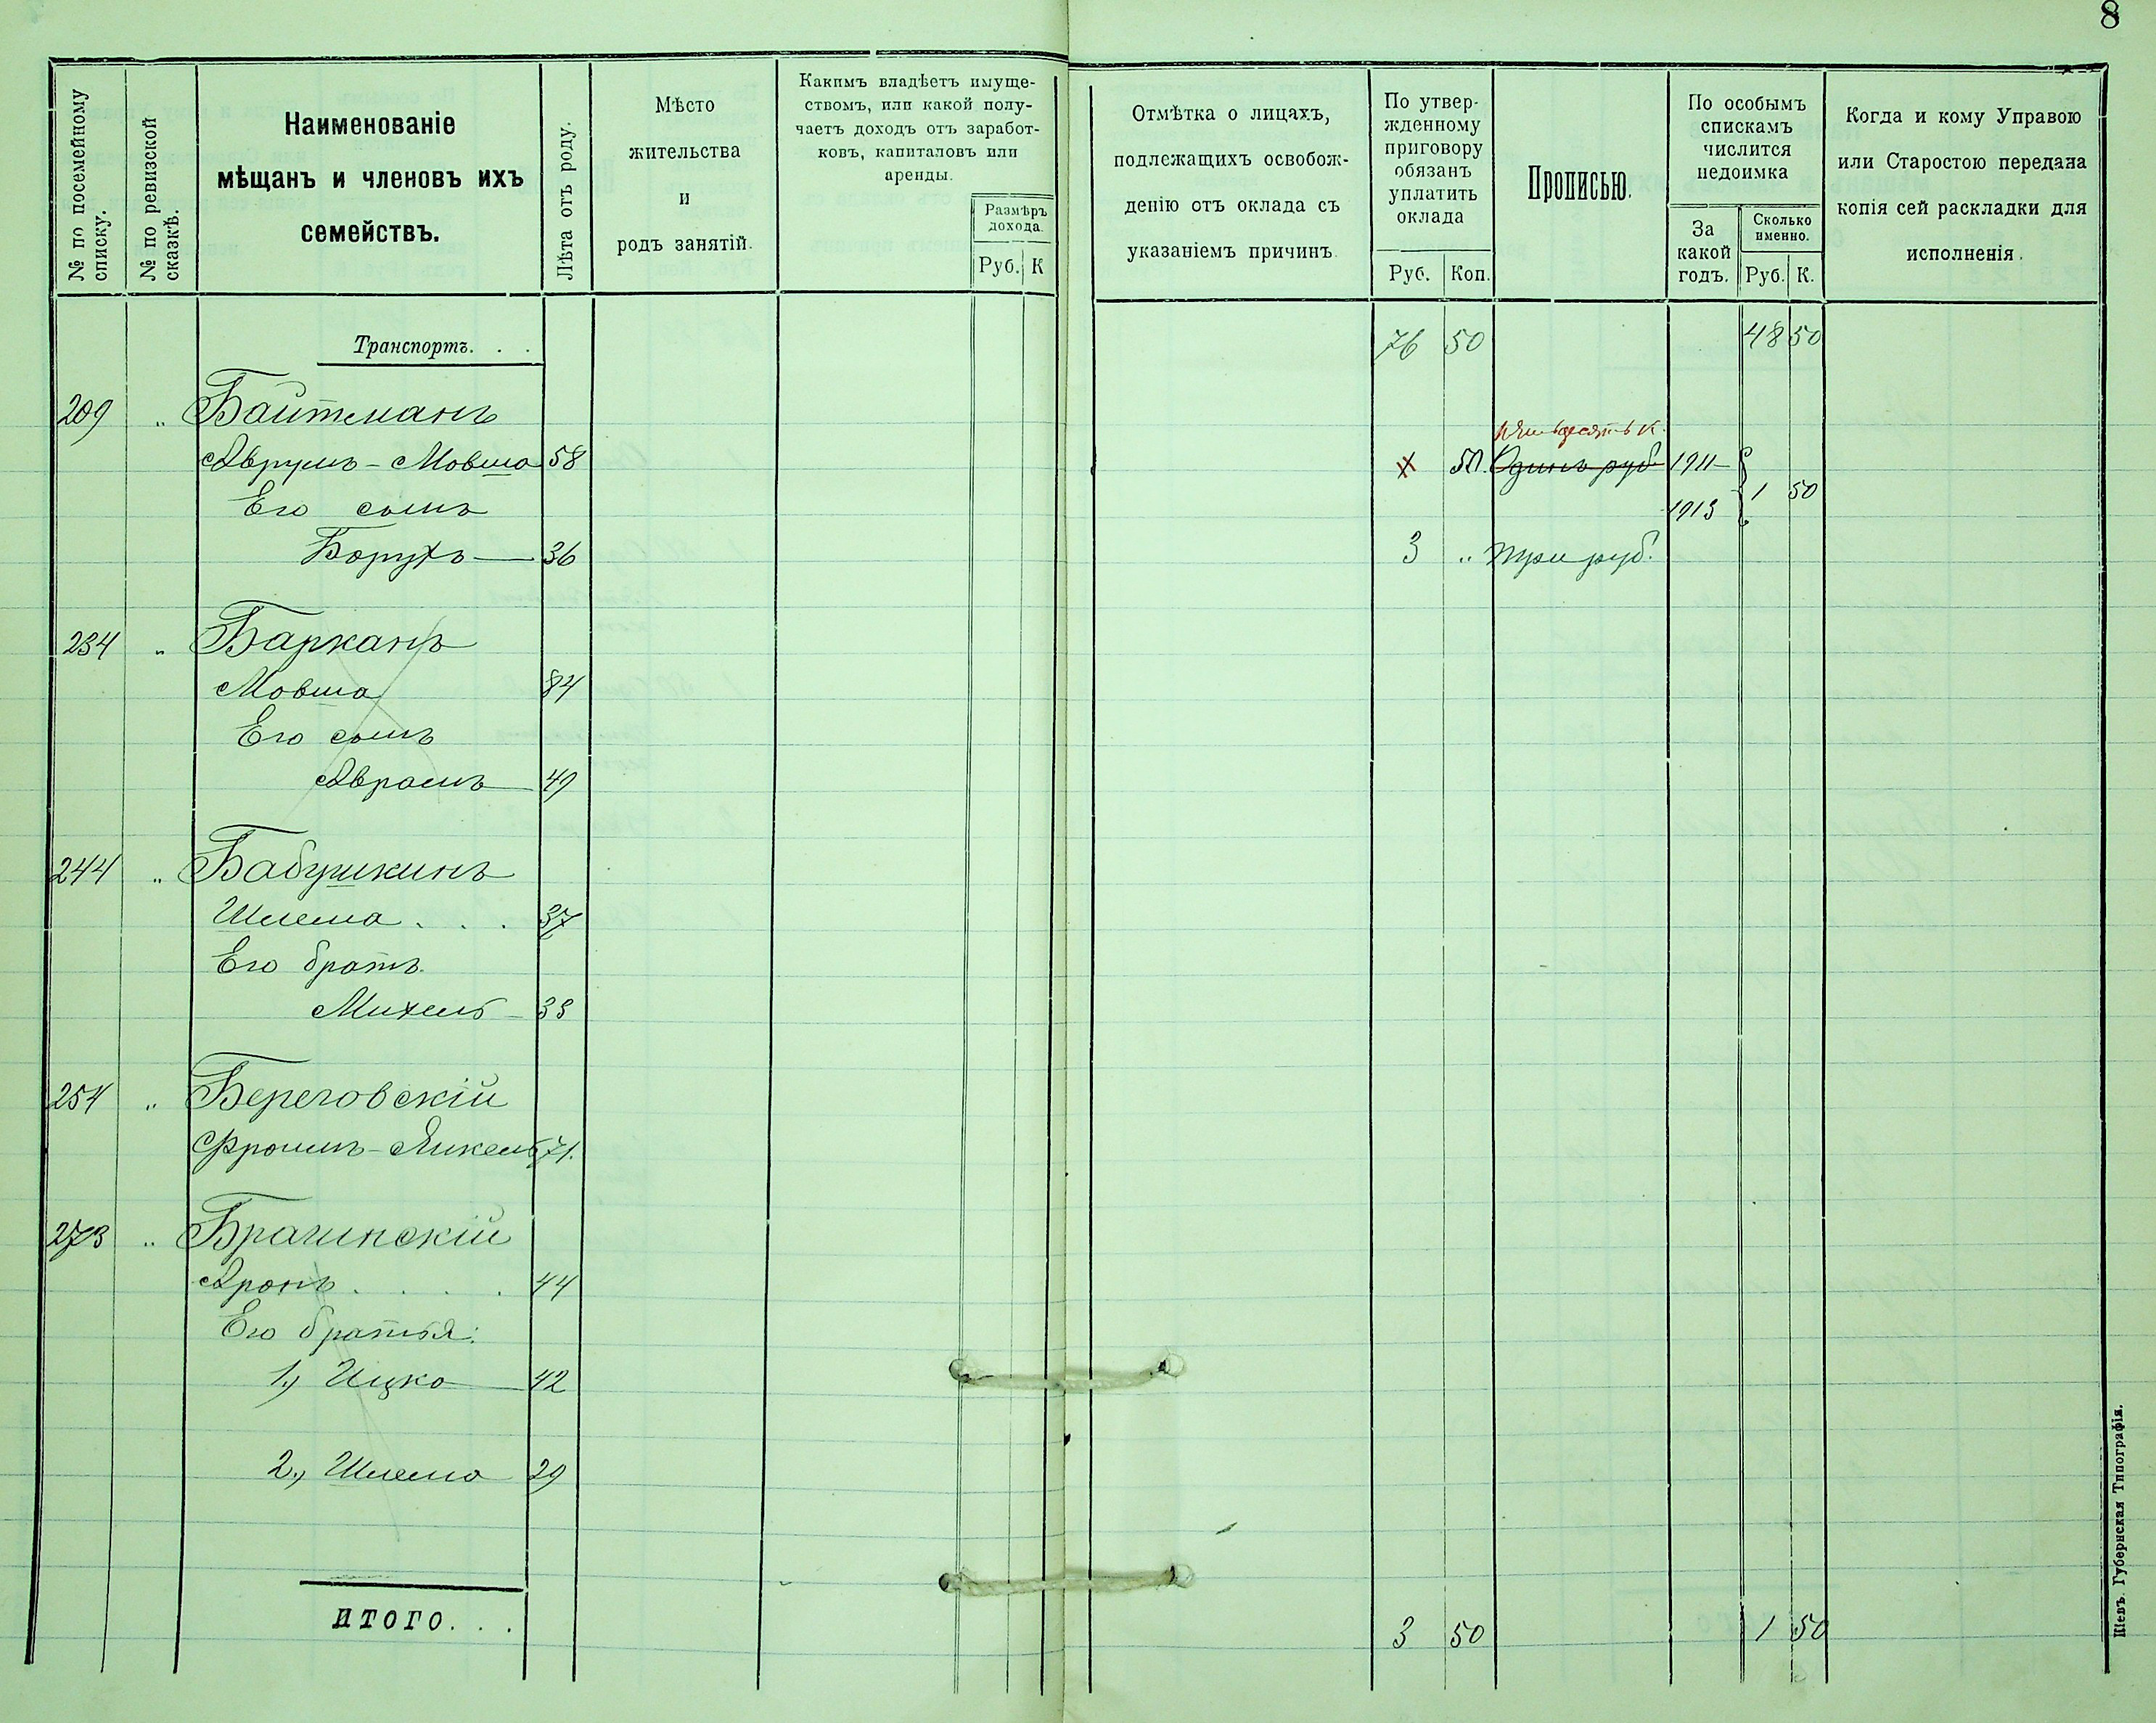 8
№ по посемейному списку.
№ по ревизской сказкѣ.
Наименованіе
мѣщанъ и членовъ ихъ
семействъ.
Лѣта отъ роду.
Мѣсто
жительства
и
родъ занятій.
Какимъ владѣетъ имуще-
ствомъ, или какой полу-
чаетъ доходъ отъ заработ-
ковъ, капиталовъ или
аренды.
Размѣръ
дохода.
Руб. К
Отмѣтка о лицахъ,
подлежащихъ освобож-
денію отъ оклада съ
указаніемъ причинъ
По утвер-
жденному
приговору
обязанъ
уплатить
оклада
Руб. Коп.
Прописью.
По особымъ
спискамъ
числится
недоимка
За
какой
годъ.
Сколько
именно.
Руб. К.
Когда и кому Управою
или Старостою передана
копія сей раскладки для
исполненія.
Транспортъ. . . 76 50 48 50
209 " Байтманъ
пятьдесятъ к.
Аврумъ-Мовша 58 50. Одинъ руб. 1911-
Его сынъ 1913 1 50
Борухъ 36 3 " три руб.
234 " Барканъ
Мовша 84
Его сынъ
Аврамъ 49
244 " Бабушкинъ
Шлема . . . 37
Его братъ.
Михель 33
254 " Береговскій
Фроимъ-Янкель 71.
273 " Брагинскій
Аронъ . . . . 44
Его братья:
1.) Ицко 42
2.) Шлема 29
ИТОГО. . . 3 50 1 50
Кіевъ. Губернская Типографія.